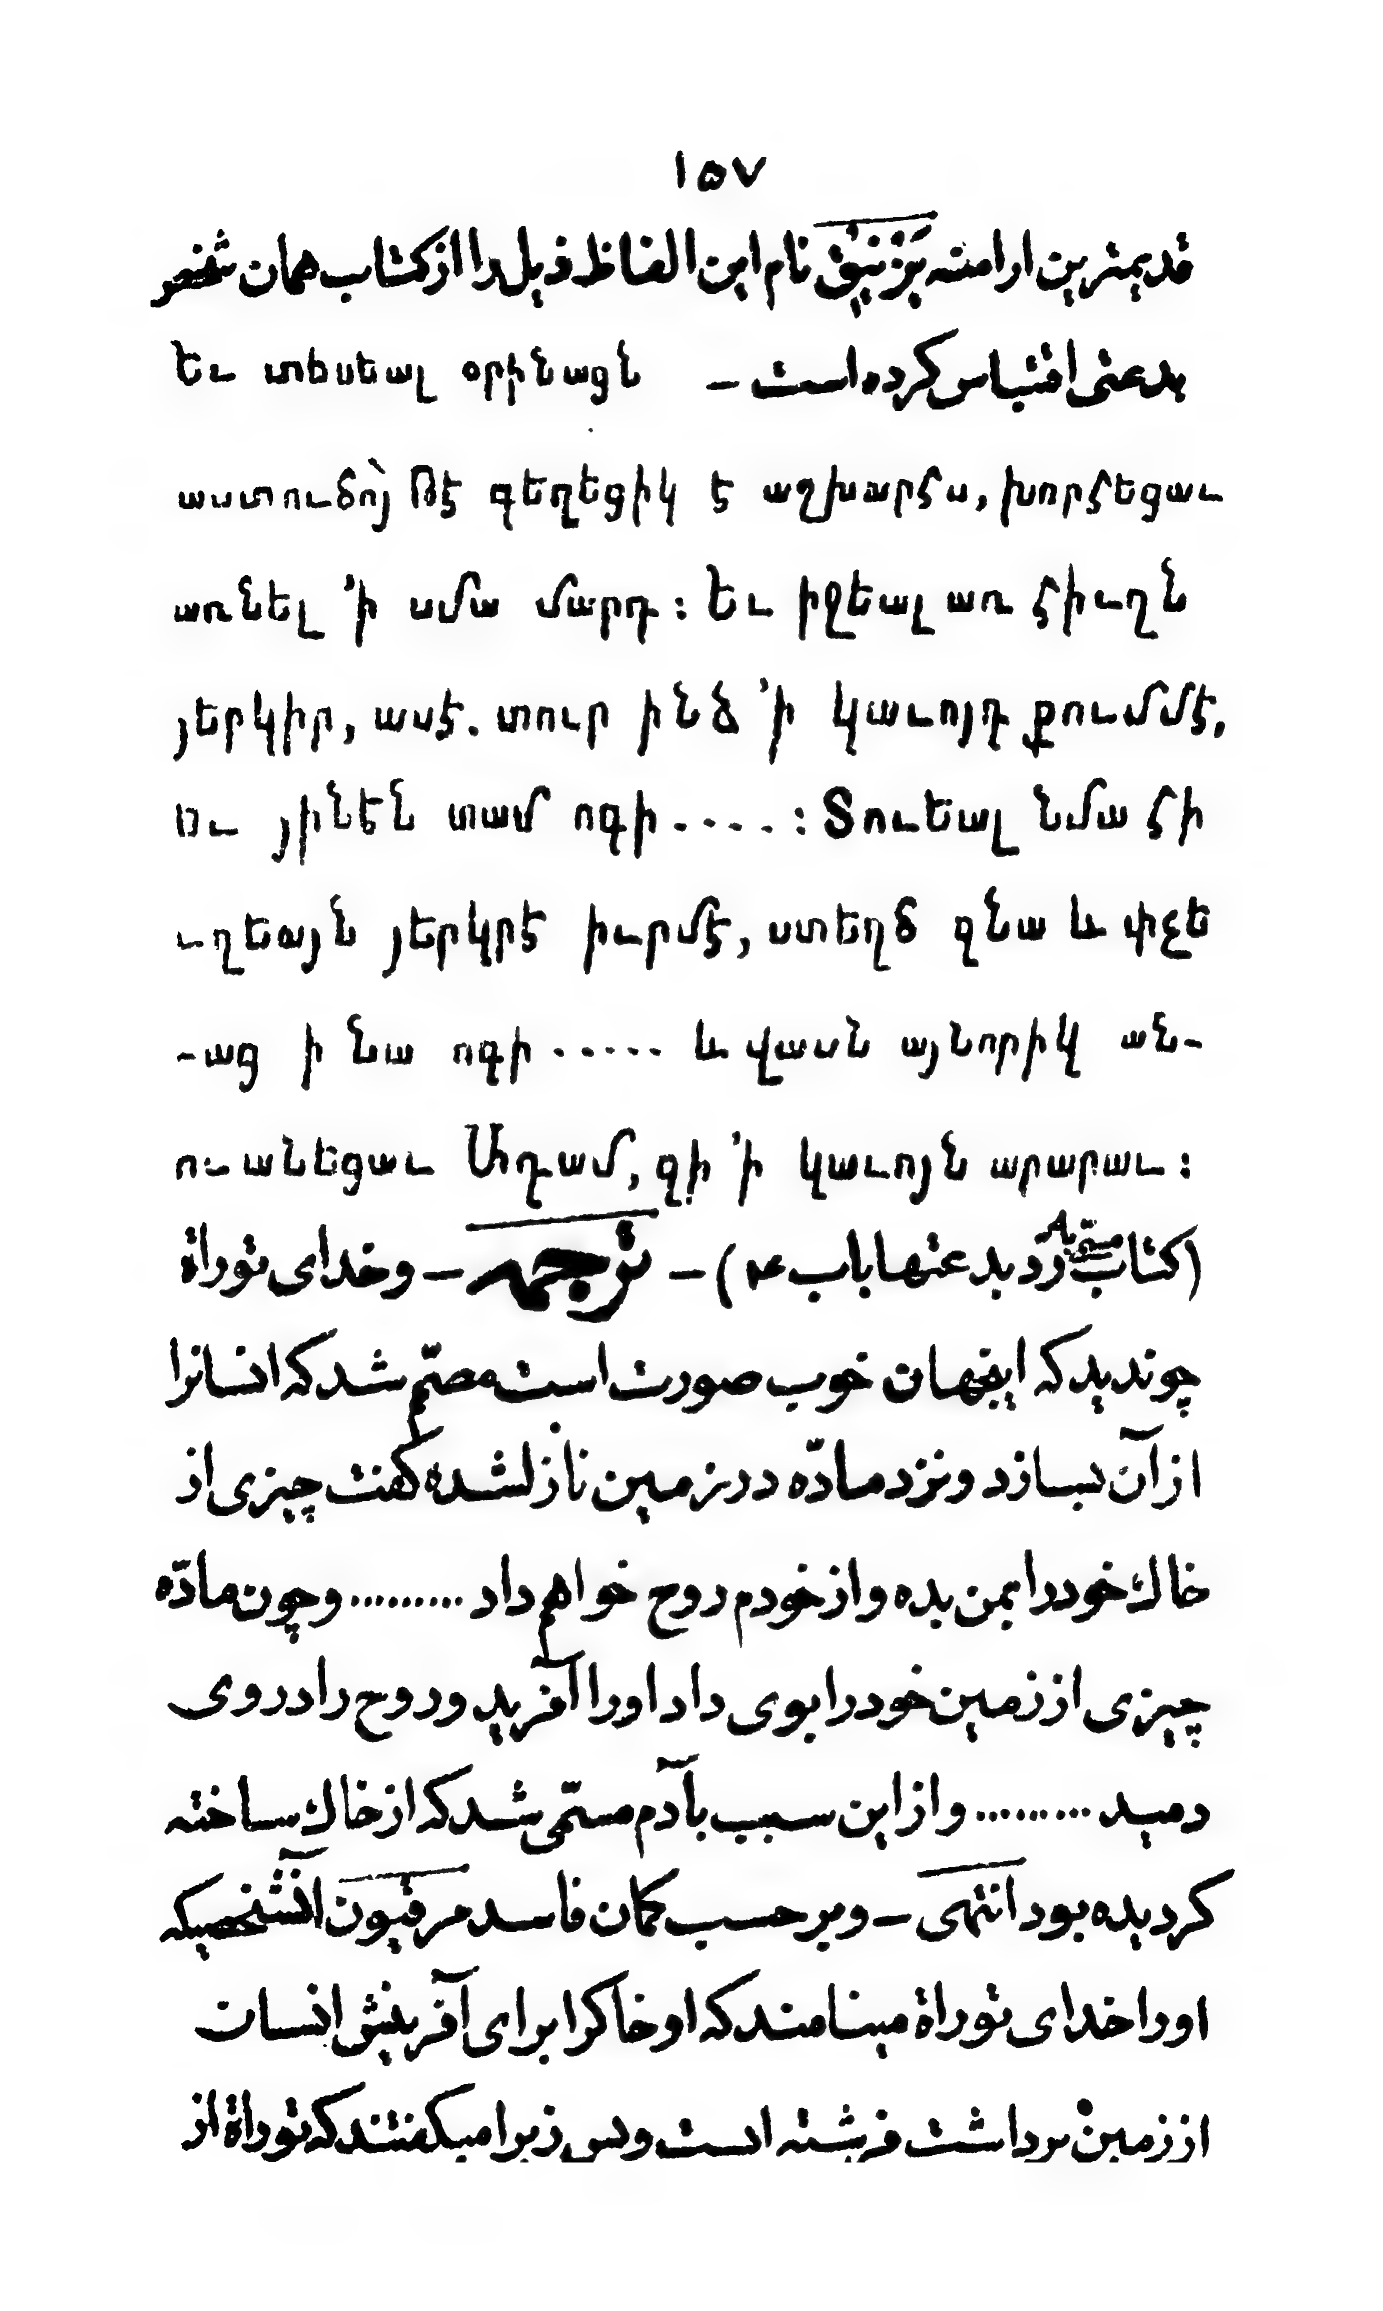 ۱۵۷
قدیمترین ارامنه یَزْنیِق نام این الفاظ ذیل را از کتاب همان شخص
بدعتی اقتباس کرده است – Եւ տեսեալ օրինացն
աստուծոյ̀ թէ գեղեցիկ է աշխարհս, խորհեցաւ
առնել ՚ի սմա մարդ : Եւ իջեալ առ հիւղն
յերկիր, ասէ. տուր ինձ ՚ի կաւոյդ քումմէ,
ու յինէն տամ ոգի . . . . : Տուեալ նմա հի
ւղեայն յերկրէ իւրմէ, ստեղծ զնա և փչե
-աց ի նա ոգի . . . . . և վասն այնորիկ ան-
ուանեցաւ Ադամ, զի ՚ի կաւոյն արարաւ :
(کتاب مسمّی به ردّ بدعتها باب ۴) – ترجمه – و خدای توراة
چون دید که اینجهان خوب صورت است مصمّم شد که انسانرا
از آن بسازد و نزد مادّه در زمین نازلشده گفت چیزی از
خاك خود را بمن بده و از خودم روح خواهم داد ......... و چون مادّه
چیزی از زمین خود را بوی داد او را آفرید و روح را در وی
دمید ......... و از این سبب بآدم مسمّی شد که از خاك ساخته
گردیده بود انتهی – و بر حسب گمان فاسد مرقیون آنشخصیکه
او را خدای توراة مینامند که او خاکرا برای آفرینش انسان
از زمین برداشت فرشته است و بس زیرا میگفتند که توراة از